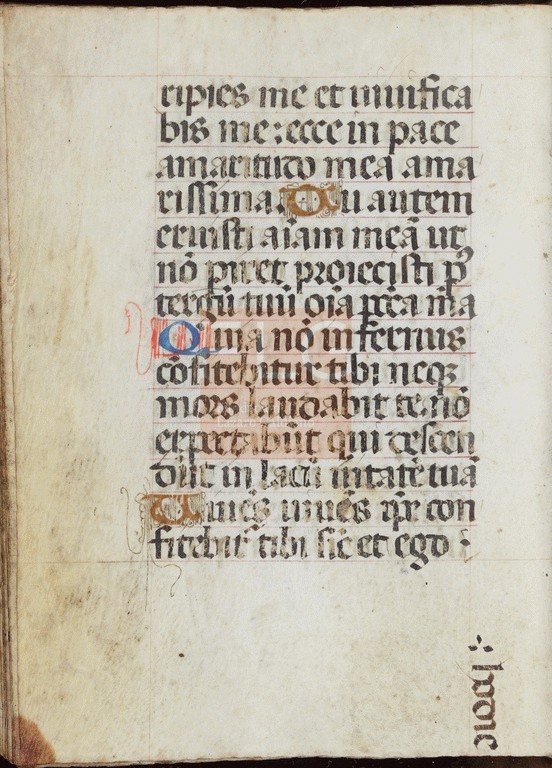 ripies me et uiuifica
bis me : ecce in pace
amaritudo mea ama
rissima. Tu autem
eruisti aīam meā ut
nō piret proiecisti p̄
tergū tuū oīa pc̄ca m̄a
Quia nō infernus
cōfitebitur tibi neqȝ
mors laudabit te: nō
expectabūt qui descen
dūt in lacū uitatē tuā
Uiuēs uiuēs ip̄e con
fitebit̄ tibi sic̄ et ego :
hodie